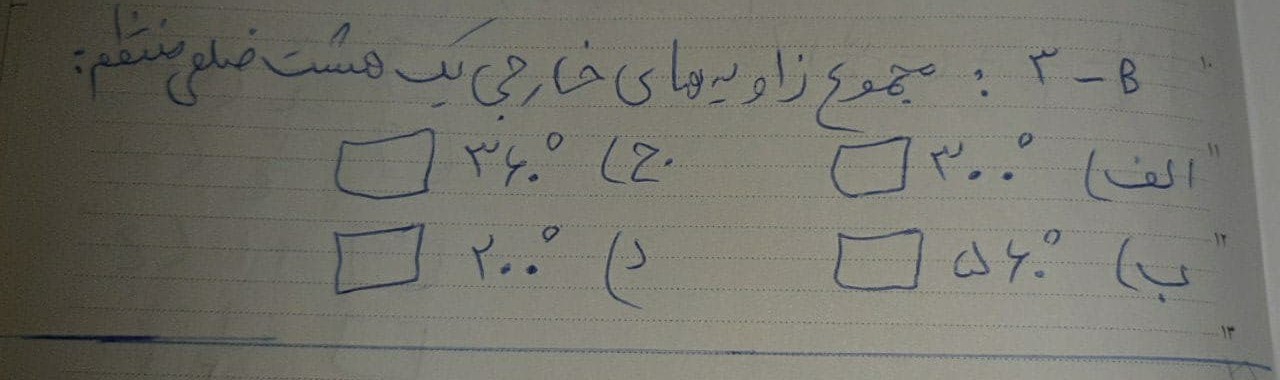 ۱۰
۳ - B : مجموع زاویه‌های خارجی یک هشت ضلعی منتظم:
۱۱
الف) ۳۰۰° ج) ۳۶۰°
۱۲
ب) ۵۶۰° د) ۲۰۰°
۱۳